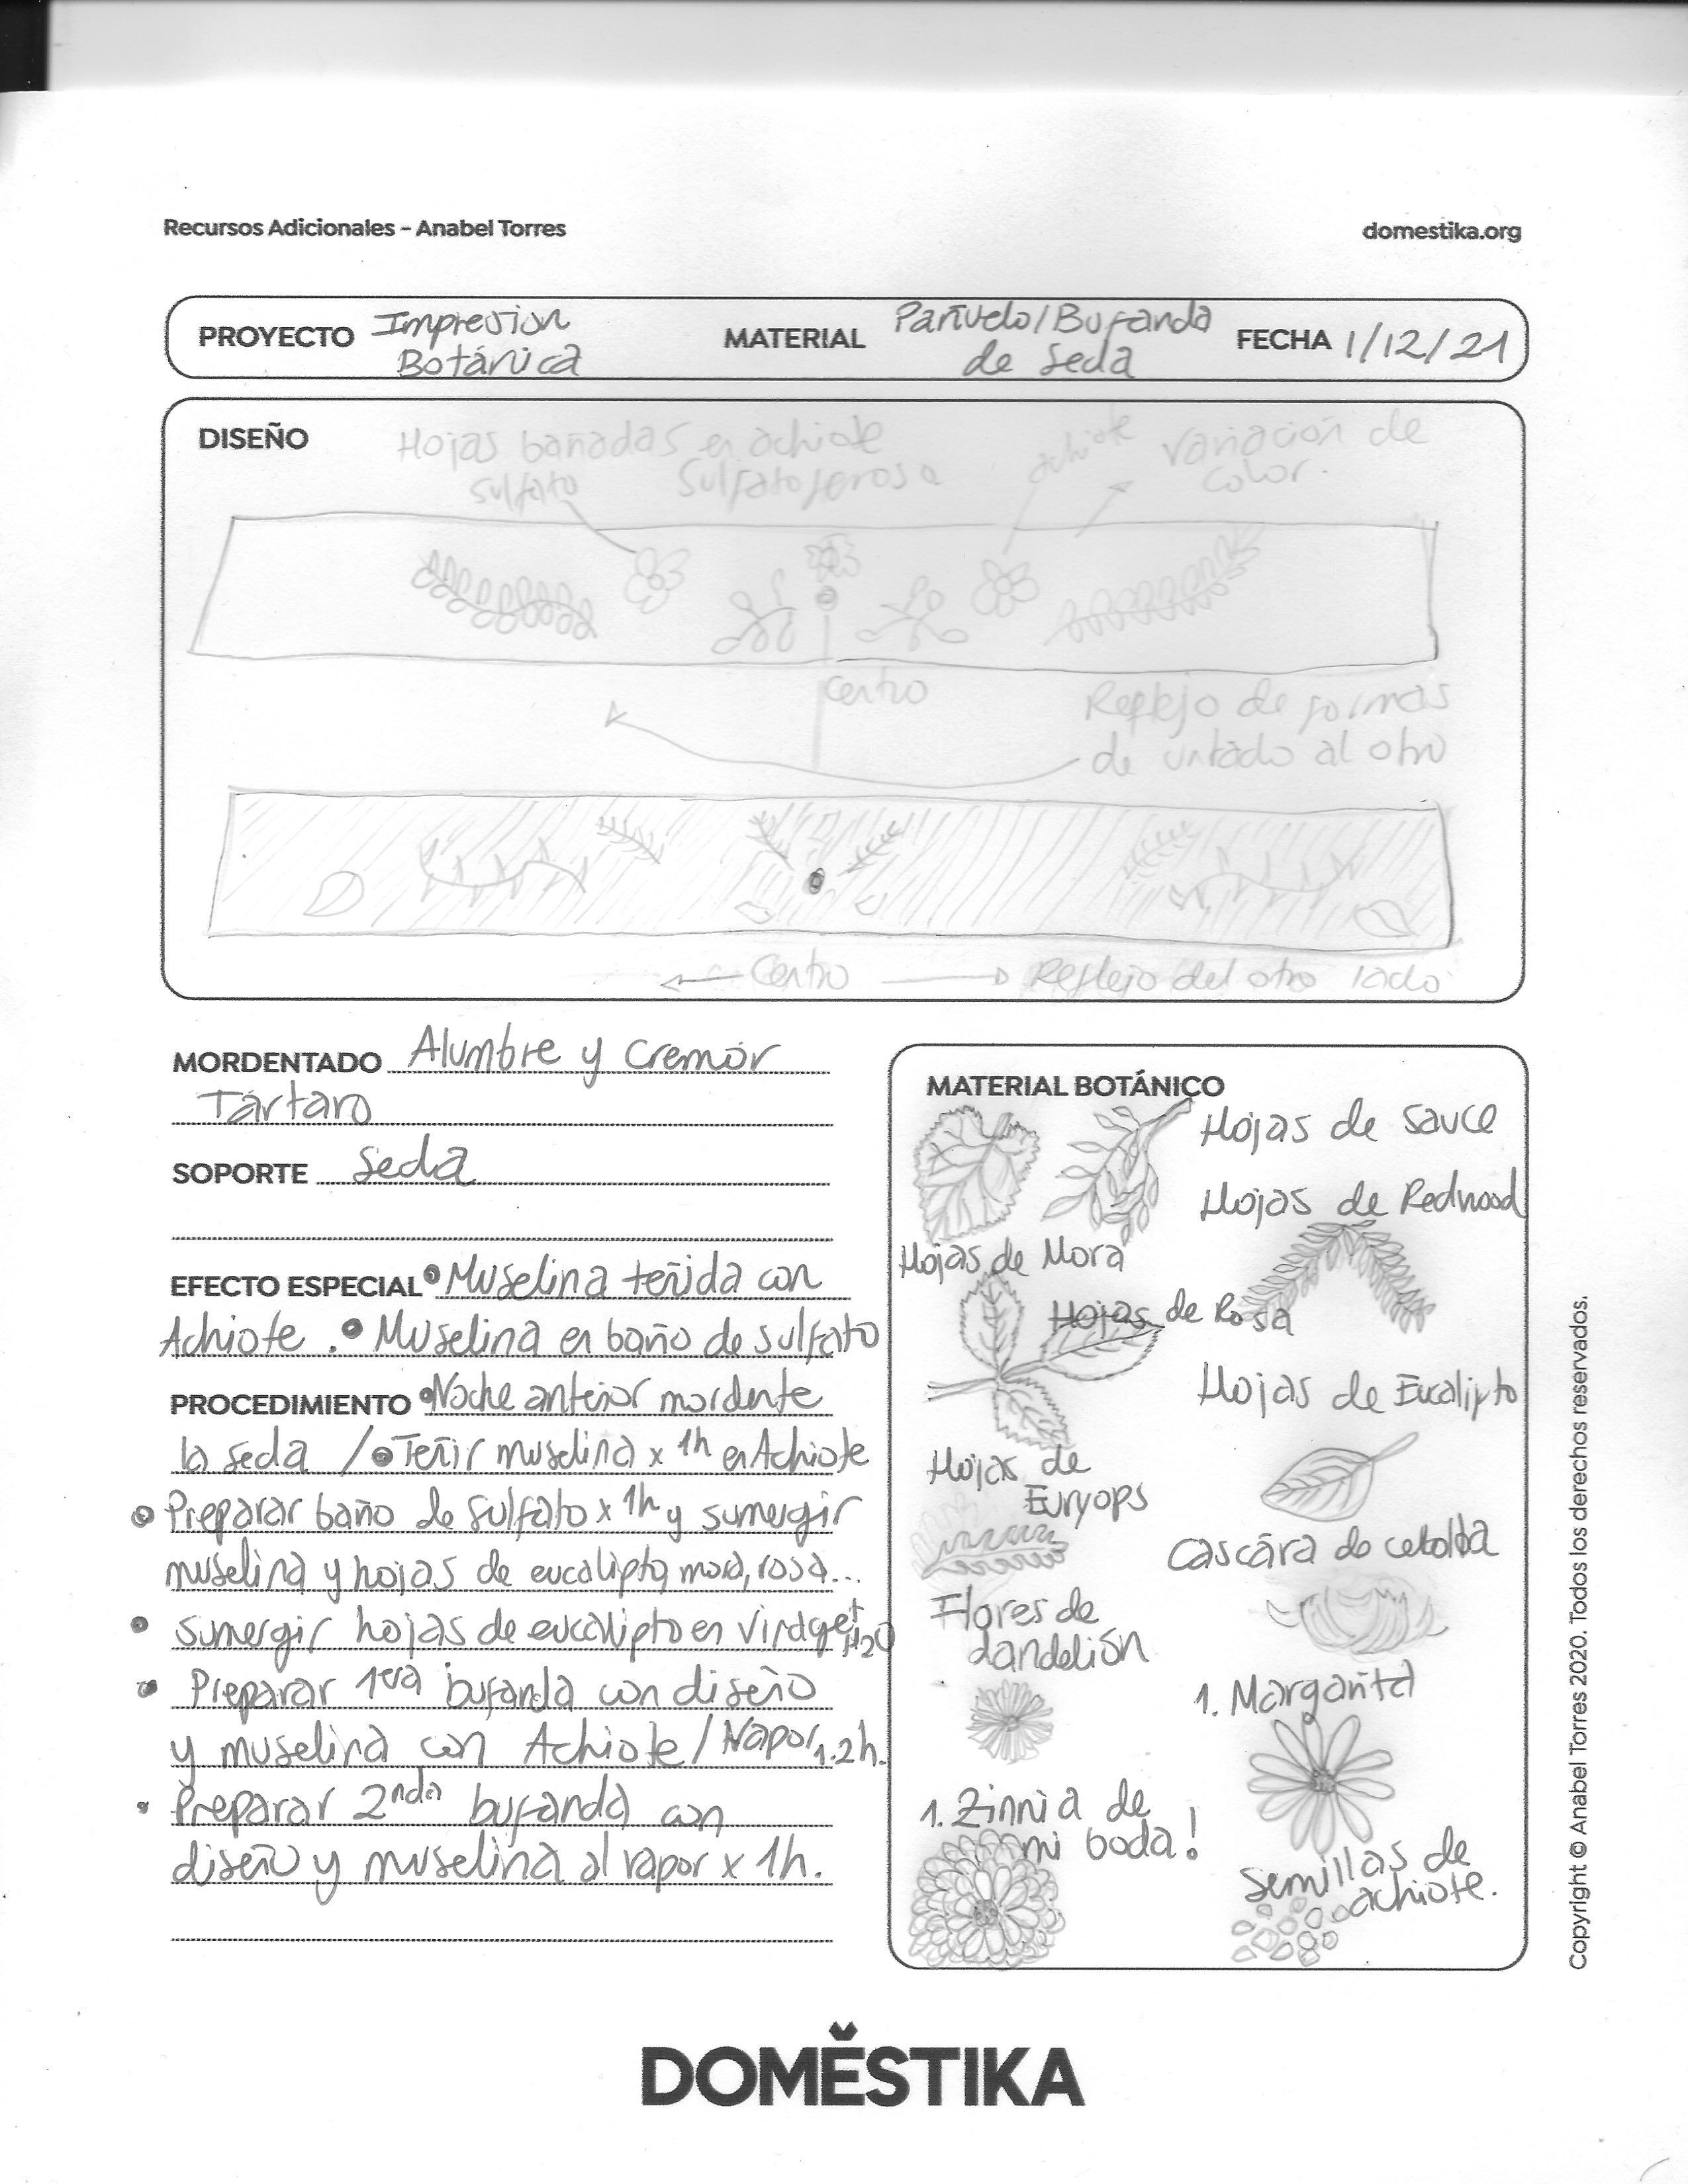 Recursos Adicionales - Anabel Torres
domestika.org
PROYECTO Impresion
Botánica
MATERIAL Pañuelo/Bufanda
de seda
FECHA 1/12/21
DISEÑO
Hojas bañadas en achiote
sulfato
Sulfato ferroso
achiote
Variación de
color.
Centro
Reflejo de formas
de un lado al otro
Centro
Reflejo del otro lado
MORDENTADO Alumbre y Cremór
Tártaro
SOPORTE Seda
EFECTO ESPECIAL • Muselina teñida con
Achiote . • Muselina en baño de sulfato
PROCEDIMIENTO • Noche anterior mordente
la seda / • Teñir muselina x 1h en Achiote
• Preparar baño de sulfato x 1h y sumergir
muselina y hojas de eucalipto, mora, rosa...
• Sumergir hojas de eucalipto en Vinagre + H2O
• Preparar 1era bufanda con diseño
y muselina con Achiote / Vapor 1.2h.
• Preparar 2nda bufanda con
diseño y muselina al vapor x 1h.
MATERIAL BOTÁNICO
Hojas de Sauce
Hojas de Redwood
Hojas de Mora
Hojas de Rosa
Hojas de Eucalipto
Hojas de
Euryops
Cascára de cebolla
Flores de
dandelión
1. Margarita
1. Zinnia de
mi boda!
Semillas de
achiote.
Copyright © Anabel Torres 2020. Todos los derechos reservados.
DOMESTIKA